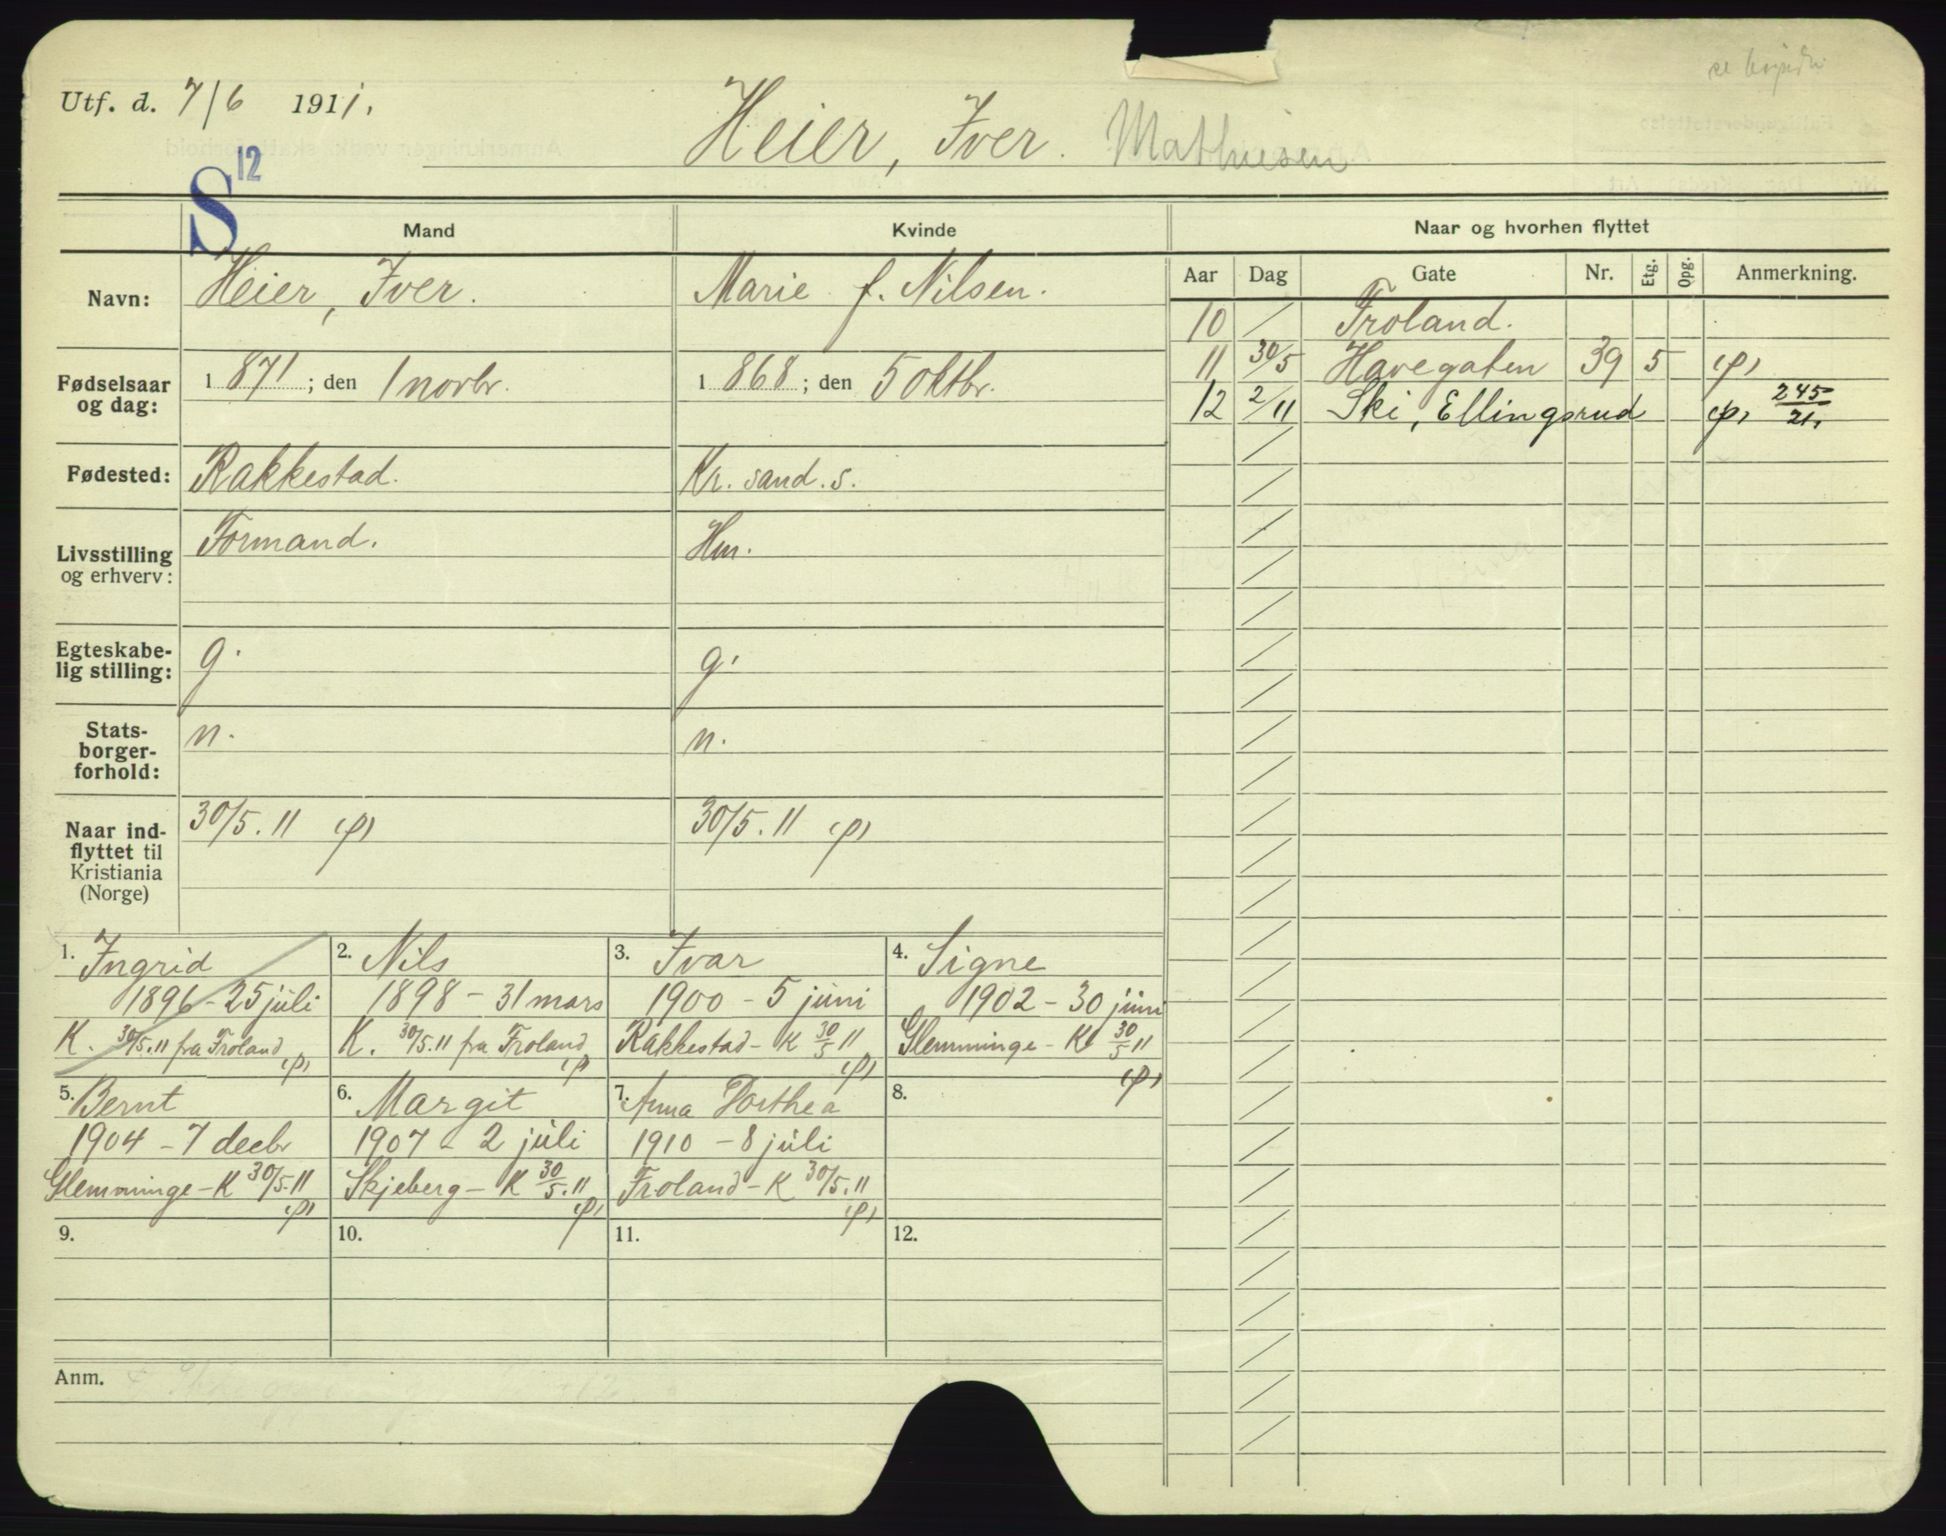 Utf. d. 7/6 1911.
Heier, Iver. Mathiesen
S 12
Mand Kvinde Naar og hvorhen flyttet
Aar Dag Gate Nr. Etg. Opg. Anmerkning.
Navn: Heier, Iver. Marie f. Nilsen.
Fødselsaar og dag: 1871; den 1 novbr. 1868; den 5 oktbr.
Fødested: Rakkestad. Kr. sand. s.
Livsstilling og erhverv: Formand. Hm.
Egteskabelig stilling: g. g.
Statsborgerforhold: n. n.
Naar indflyttet til Kristiania (Norge) 30/5. 11 (p) 30/5. 11 (p)
10 / Froland.
11 30/5 Havegaten 39 5 (p)
12 2/11 Ski, Ellingsrud (p) 245/21.
1. Ingrid
1896 - 25 juli
K. 30/5. 11 fra Froland (p)
2. Nils
1898 - 31 mars
K. 30/5. 11 fra Froland (p)
3. Ivar
1900 - 5 juni
Rakkestad - K 30/5 11 (p)
4. Signe
1902 - 30 juni
Glemminge - K 30/5 11 (p)
5. Bernt
1904 - 7 decbr
Glemminge - K 30/5 11 (p)
6. Margit
1907 - 2 juli
Skjeberg - K 30/5. 11 (p)
7. Anna Dorthea
1910 - 8 juli
Froland - K 30/5. 11 (p)
8.
9.
10.
11.
12.
Anm.